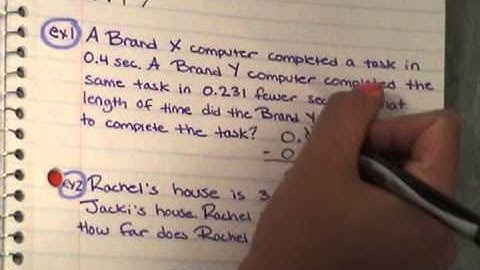 ex1 A Brand X computer completed a task in
0.4 sec. A Brand Y computer completed the
same task in 0.231 fewer
length of time did the Brand Y
to complete the task? 0.
- 0
ex2 Rachel's house is 3
Jacki's house. Rachel
How far does Rachel